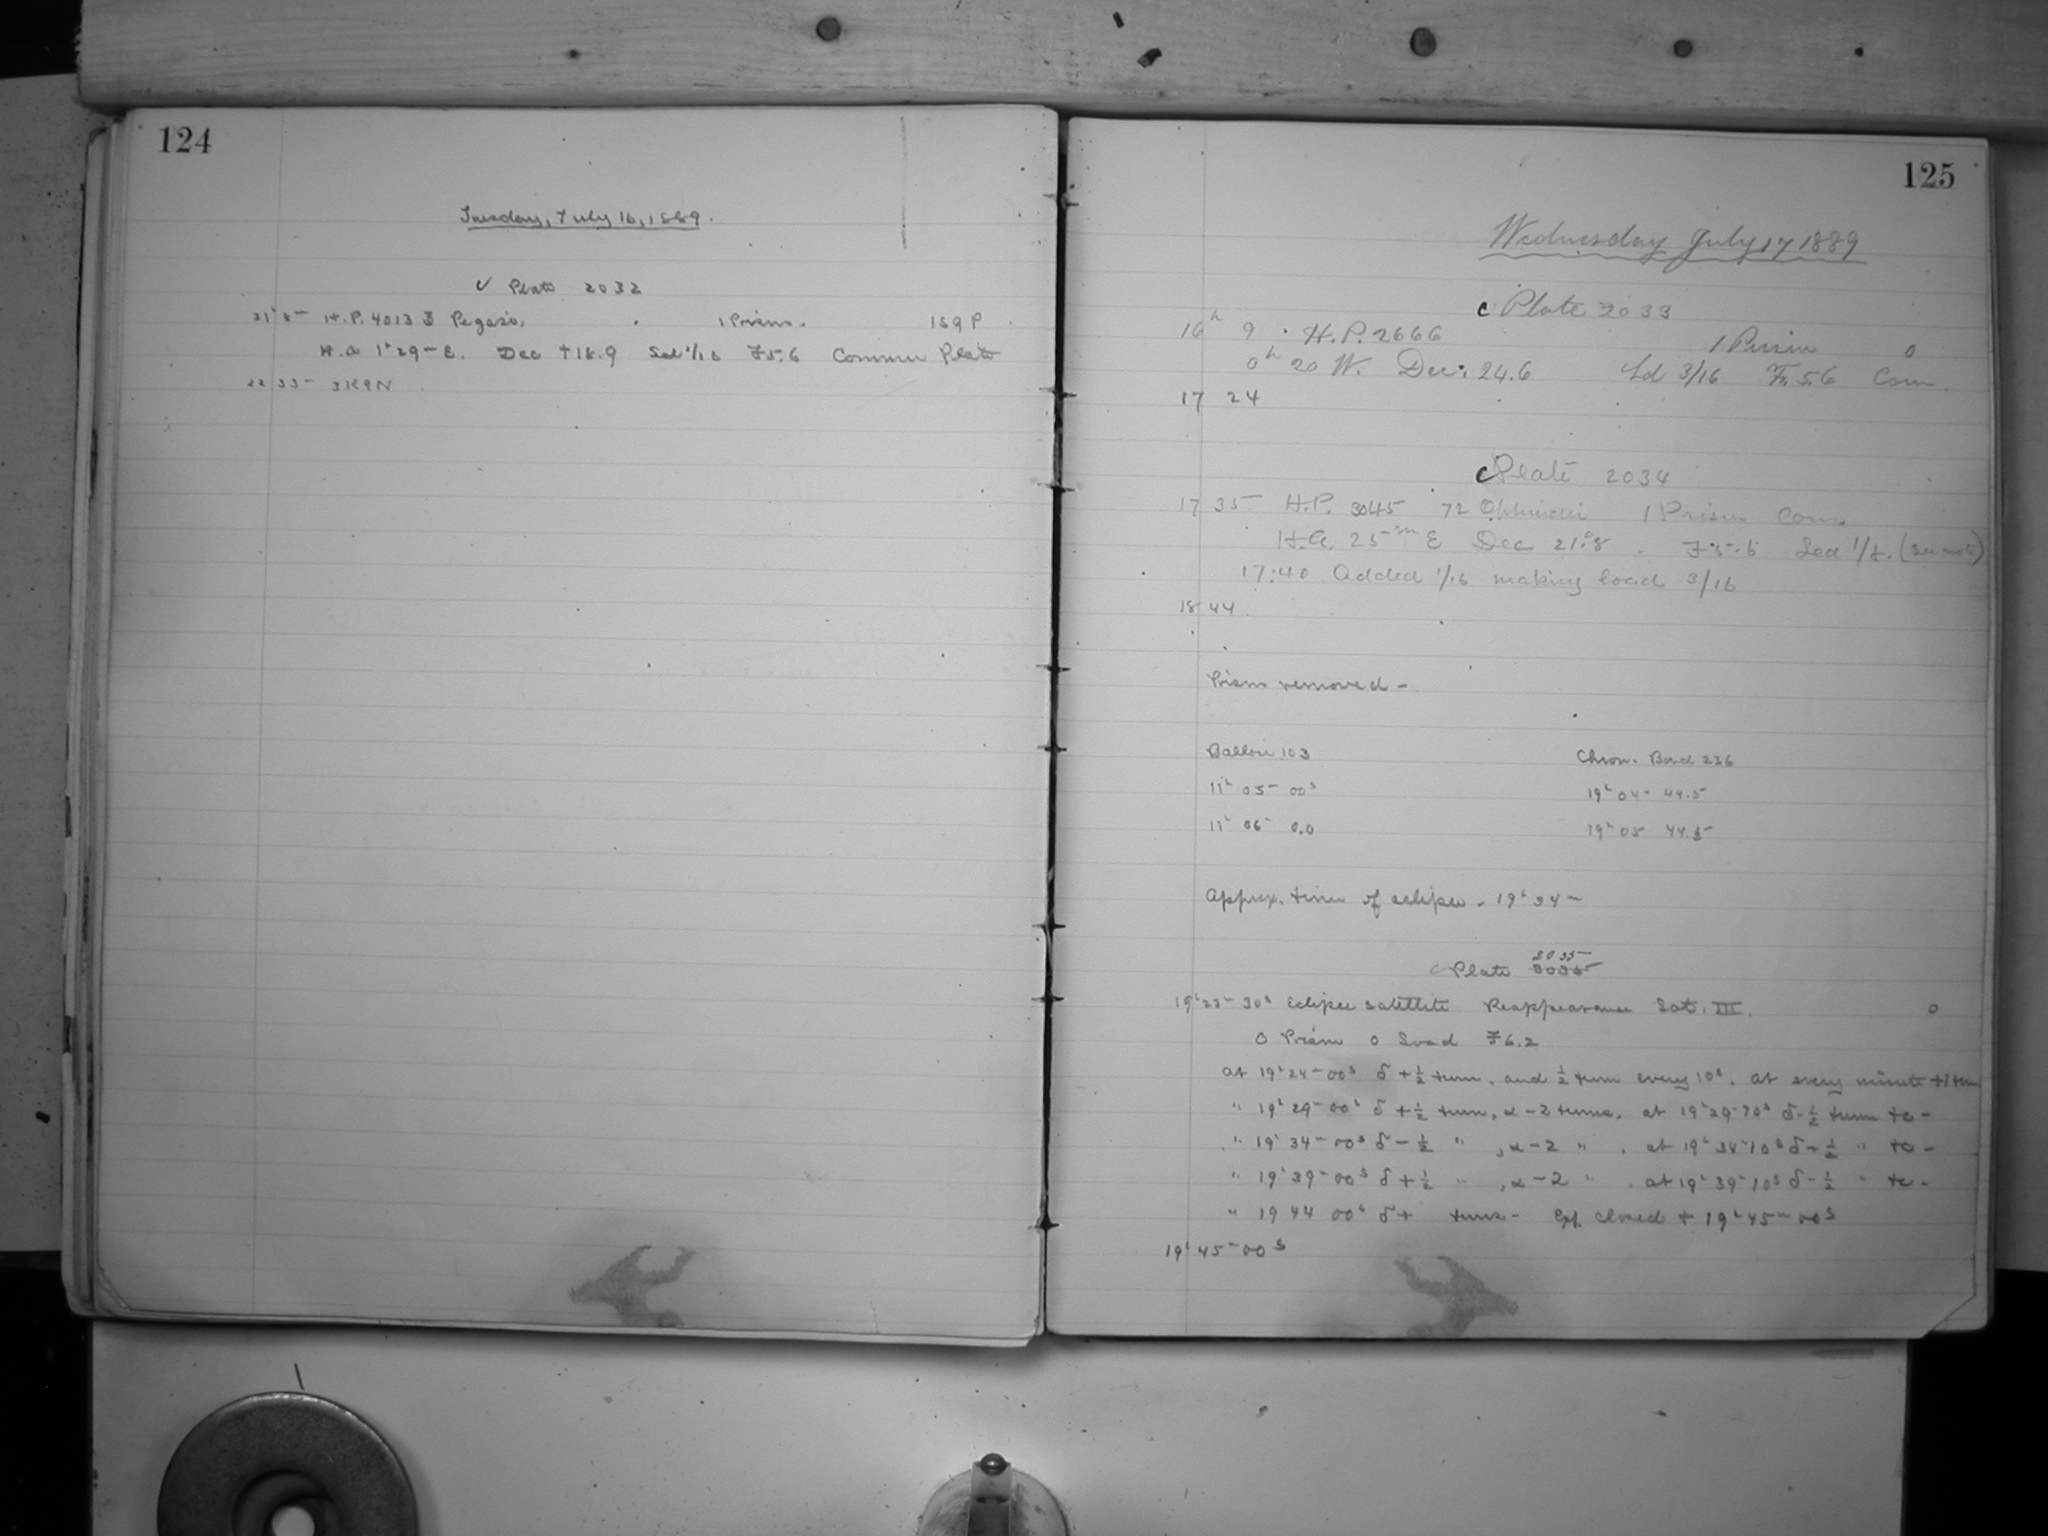 124
Tuesday, July 16, 1889.
Plate 2032
H.P. 4013 Pegasi, 1 Prism. 189 P
H.A. 1h 29m E. Dec +18.9 Led 1/16 F5.6 Common Plate
22 35
125
Wednesday July 17 1889
C Plate 2033
16h 9 H.P. 2666 1 Prism 0
0h 20 W. Dec. 24.6 Ld 3/16 F. 5.6 Com.
17 24
C Plate 2034
17 35 H.P. 3045 72 Ophiuchi 1 Prism Com
H.A. 25m E Dec 21°.8 F5.6 Led
17:40 Added 1/16 making load 3/16
18 44
Prism removed -
103 Chron. Bond 236
11h 05m 00s 19h 04m 44.5
11h 06m 0.0 19h 05 44.5
Approx. time of eclipse. 19h 34m
2035
Plate
19h 23m 30s Eclipse satellite Reappearance Sat. III. 0
0 Prism 0 Load F6.2
at 19h 24m 00s δ + 1/2 turn. and 1/2 turn every 10s. at every minute
" 19h 29m 00s δ + 1/2 turn, α - 2 turns, at 19h 29m 10s δ - 1/2 turn tc -
" 19h 34m 00s δ - 1/2 " , α - 2 " . at 19h 34m 10s δ + 1/2 " tc -
" 19h 39m 00s δ + 1/2 " , α - 2 " . at 19h 39m 10s δ - 1/2 " tc -
" 19 44 00s δ + turns - closed 19h 45m 00s
19h 45m 00s